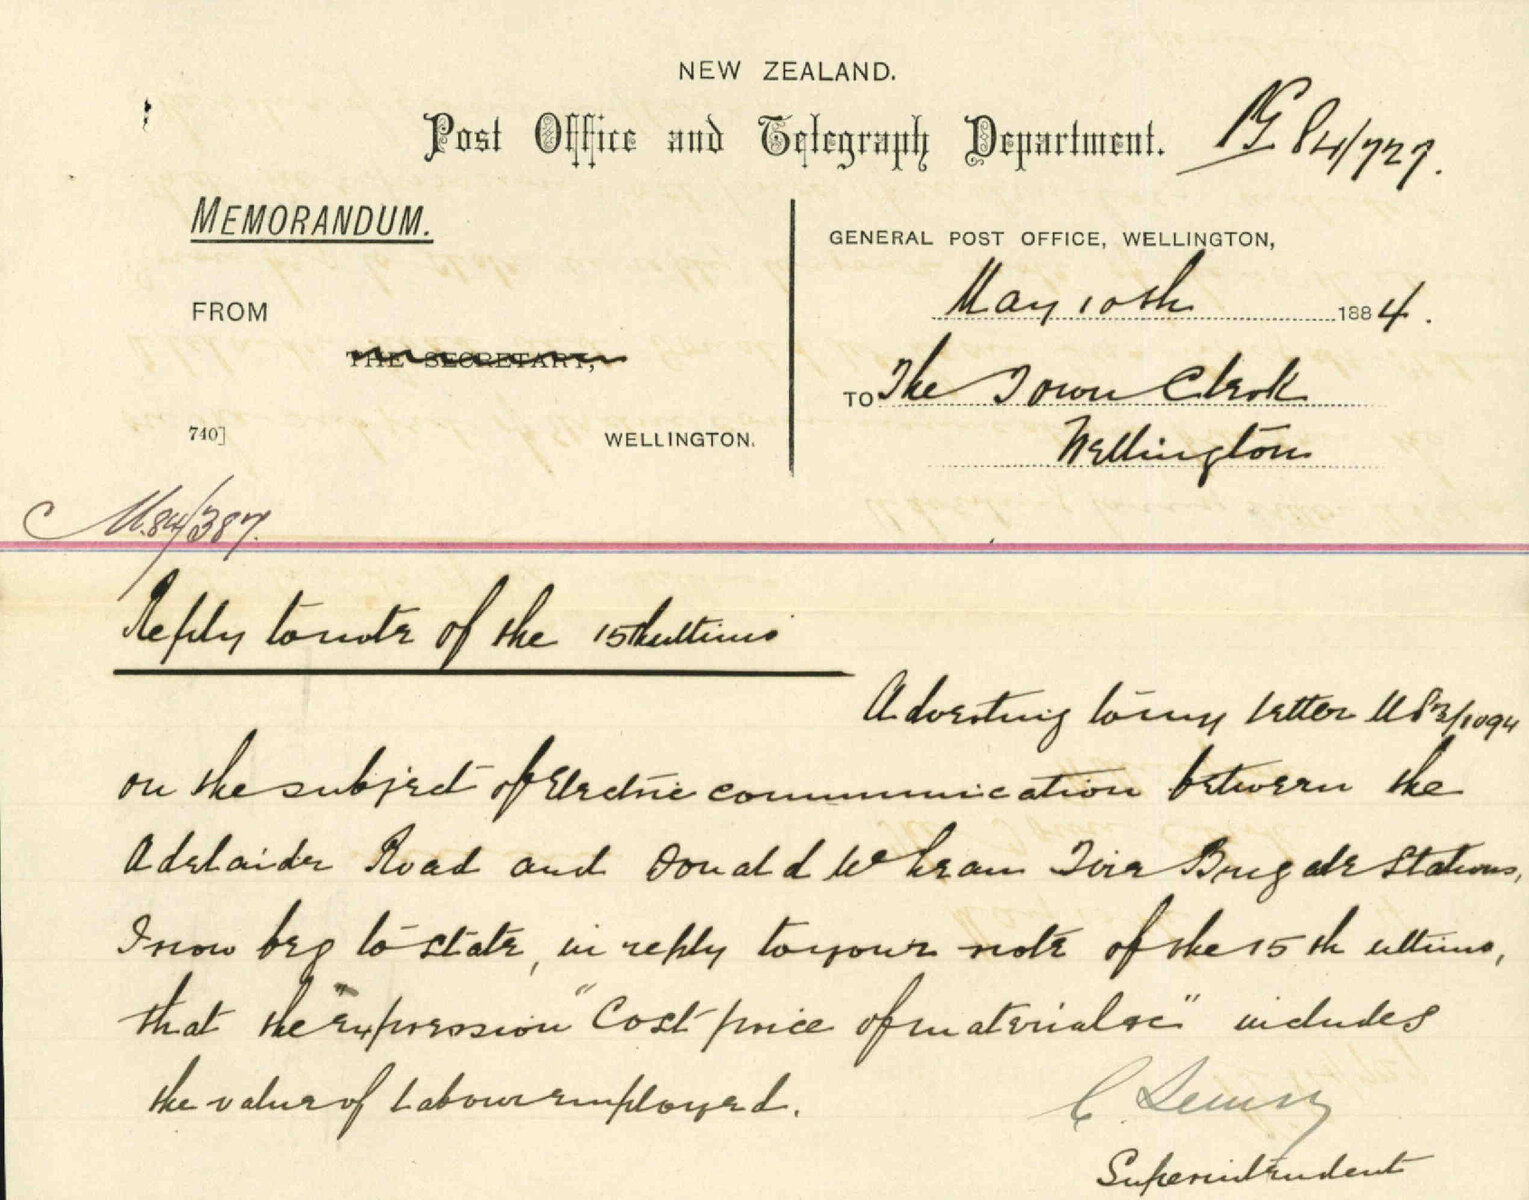 NEW ZEALAND.
Post Office and Telegraph Department.
P.G. 84/727.
MEMORANDUM.
GENERAL POST OFFICE, WELLINGTON,
May 10th 1884.
FROM
THE SECRETARY,
TO The Town Clerk
Wellington
740] WELLINGTON.
M.84/387.
Reply to note of the 15th ultimo
Adverting to my letter M 83/1094
on the subject of Electric communication between the
Adelaide Road and Donald McLean Fire Brigade Stations,
I now beg to state, in reply to your note of the 15th ultimo,
that the expression "Cost price of material &c" includes
the value of labour employed.
C. Lemon
Superintendent